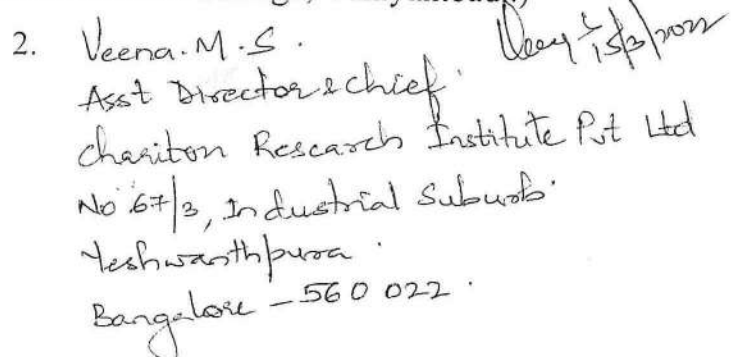 2. Veena. M. S. 15/3/2022
Asst Director & Chief
Chariton Research Institute Pvt Ltd
No 67/3, Industrial Suburb.
Yeshwanthpura.
Bangalore - 560 022.